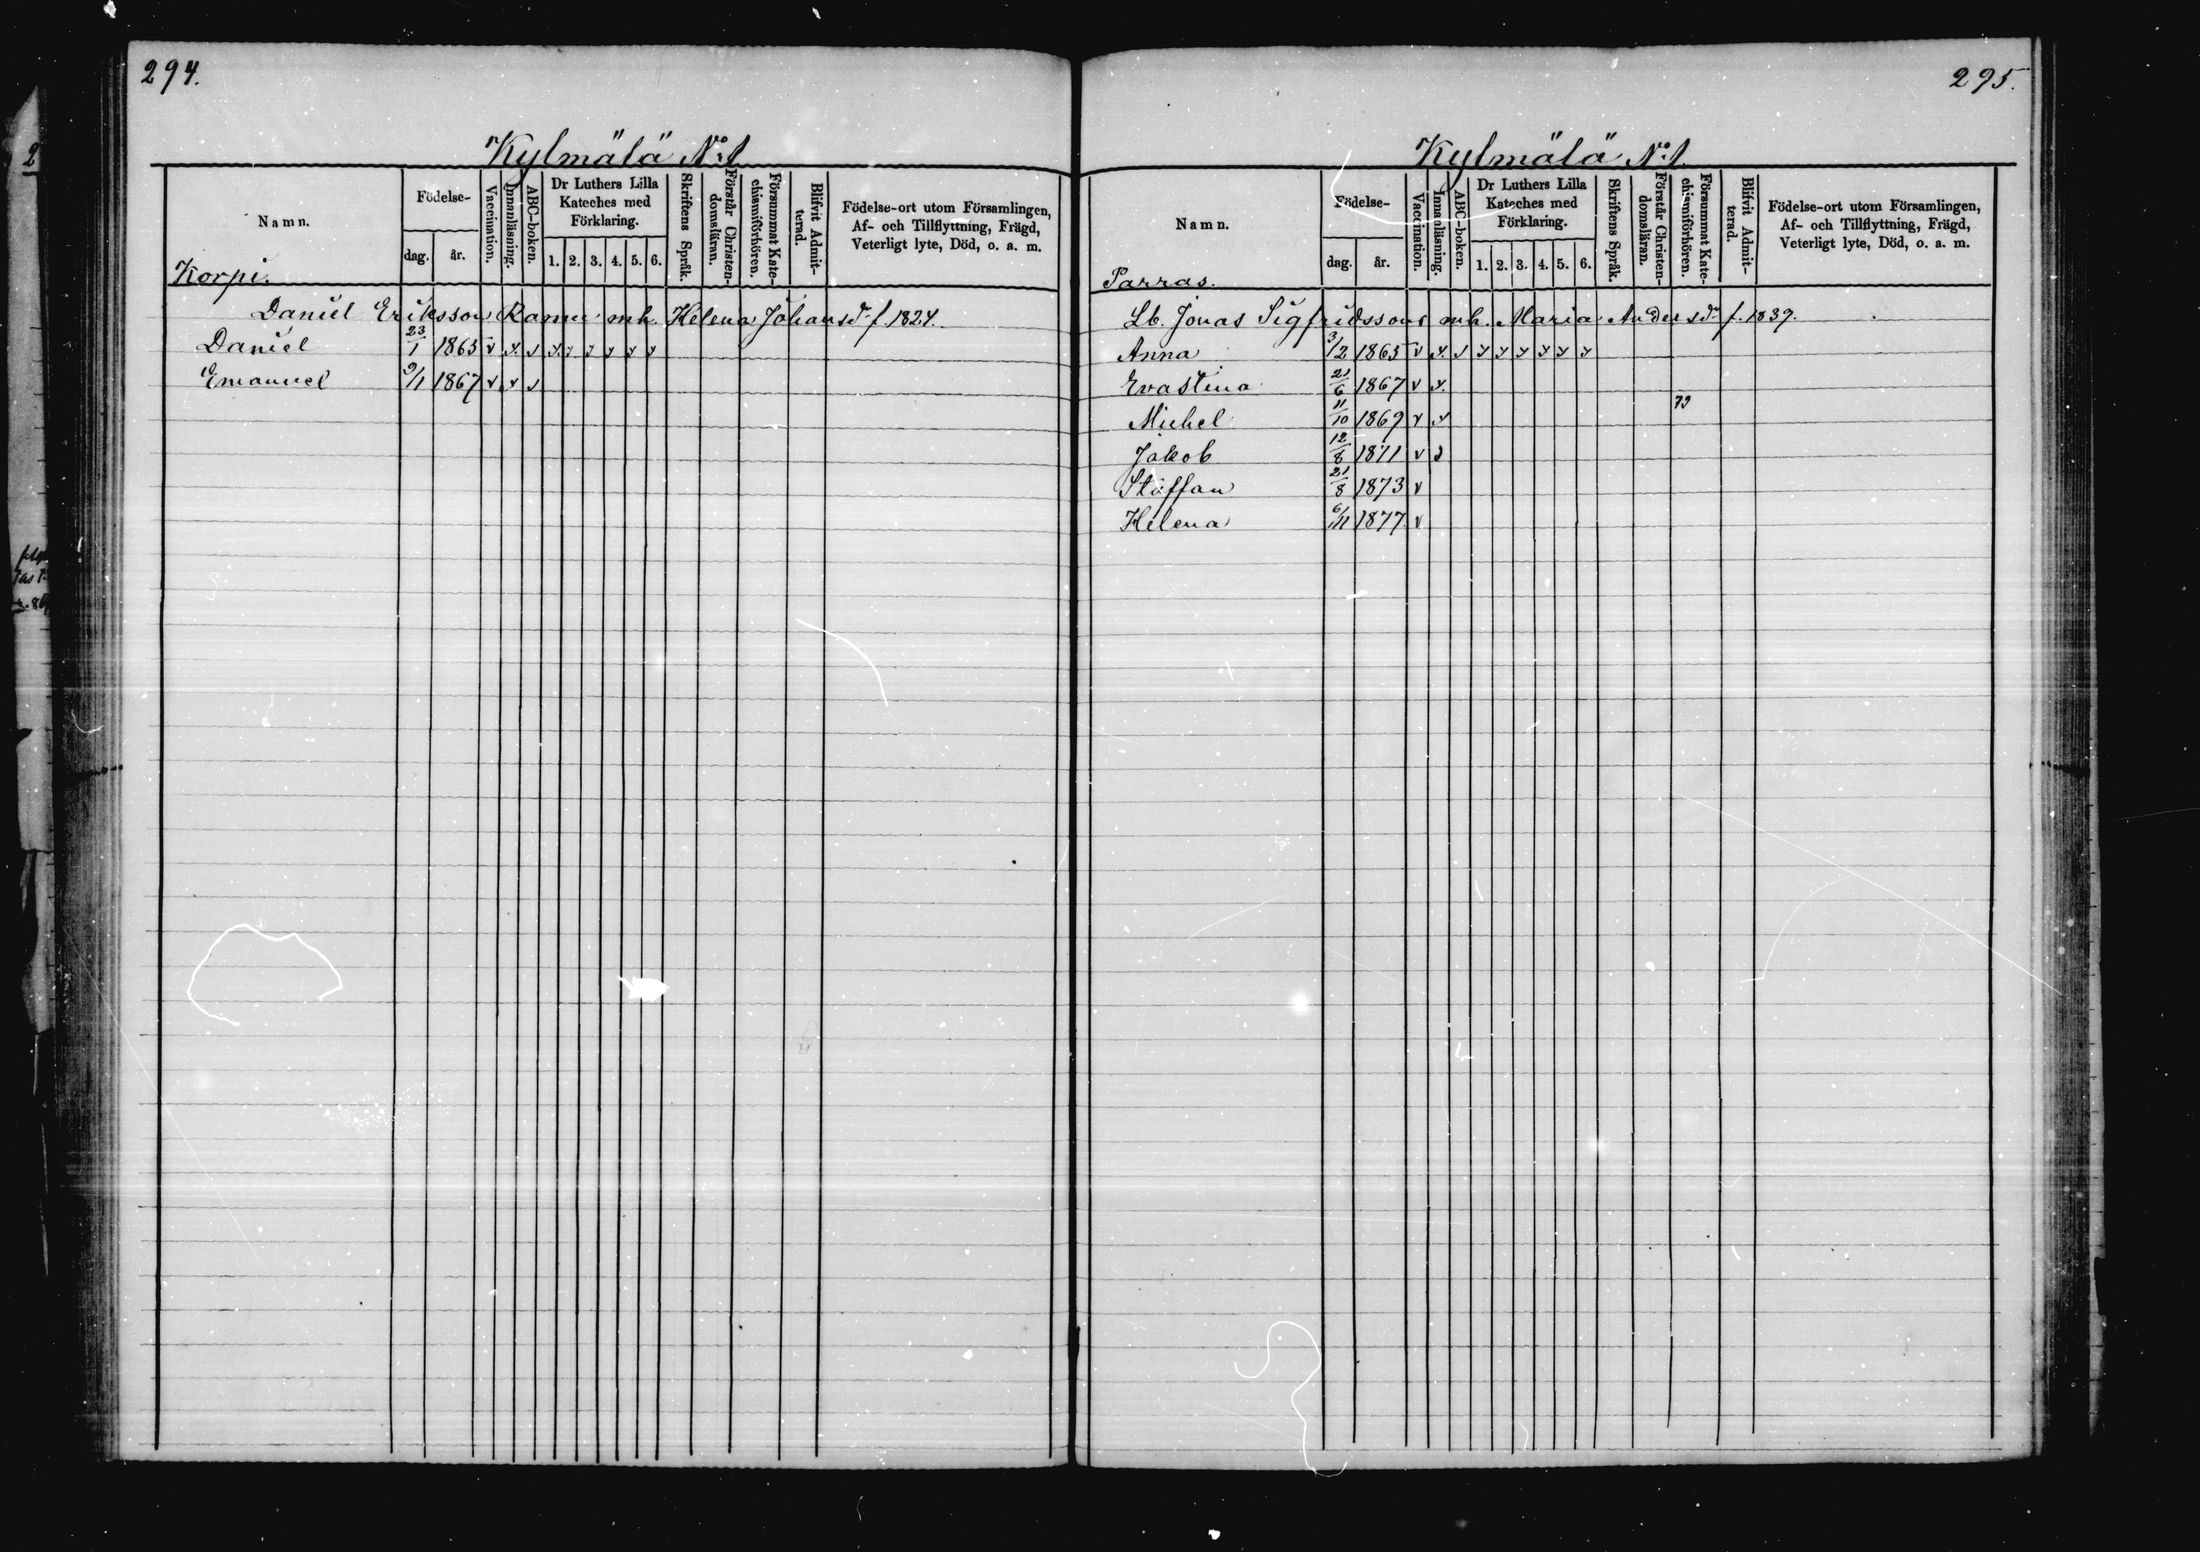 294.
Kylmälä No 1
Namn. Födelse- dag. år. Vaccination. Innanläsning. ABC-boken. Dr Luthers Lilla Kateches med Förklaring. 1. 2. 3. 4. 5. 6. Skriftens Språk. Förstår Christen-domsläran. Försummat Kate-chismiförhören. Blifvit Admit-terad. Födelse-ort utom Församlingen, Af- och Tillflyttning, Frägd, Veterligt lyte, Död, o. a. m.
Korpi.
Daniel Eriksson Ramu mh. Helena Johansdr f. 1824.
Daniel 23/1 1865
Emanuel 9/1 1867
295.
Kylmälä No 1.
Namn. Födelse- dag. år. Vaccination. Innanläsning. ABC-boken. Dr Luthers Lilla Kateches med Förklaring. 1. 2. 3. 4. 5. 6. Skriftens Språk. Förstår Christen-domsläran. Försummat Kate-chismiförhören. Blifvit Admit-terad. Födelse-ort utom Församlingen, Af- och Tillflyttning, Frägd, Veterligt lyte, Död, o. a. m.
Parras.
Lb. Jonas Sigfridssons mh. Maria Andersdr f. 1839.
Anna 3/2 1865
Evastina 21/6 1867
Michel 11/10 1869 79
Jakob 12/8 1871
Staffan 21/8 1873
Helena 6/11 1877